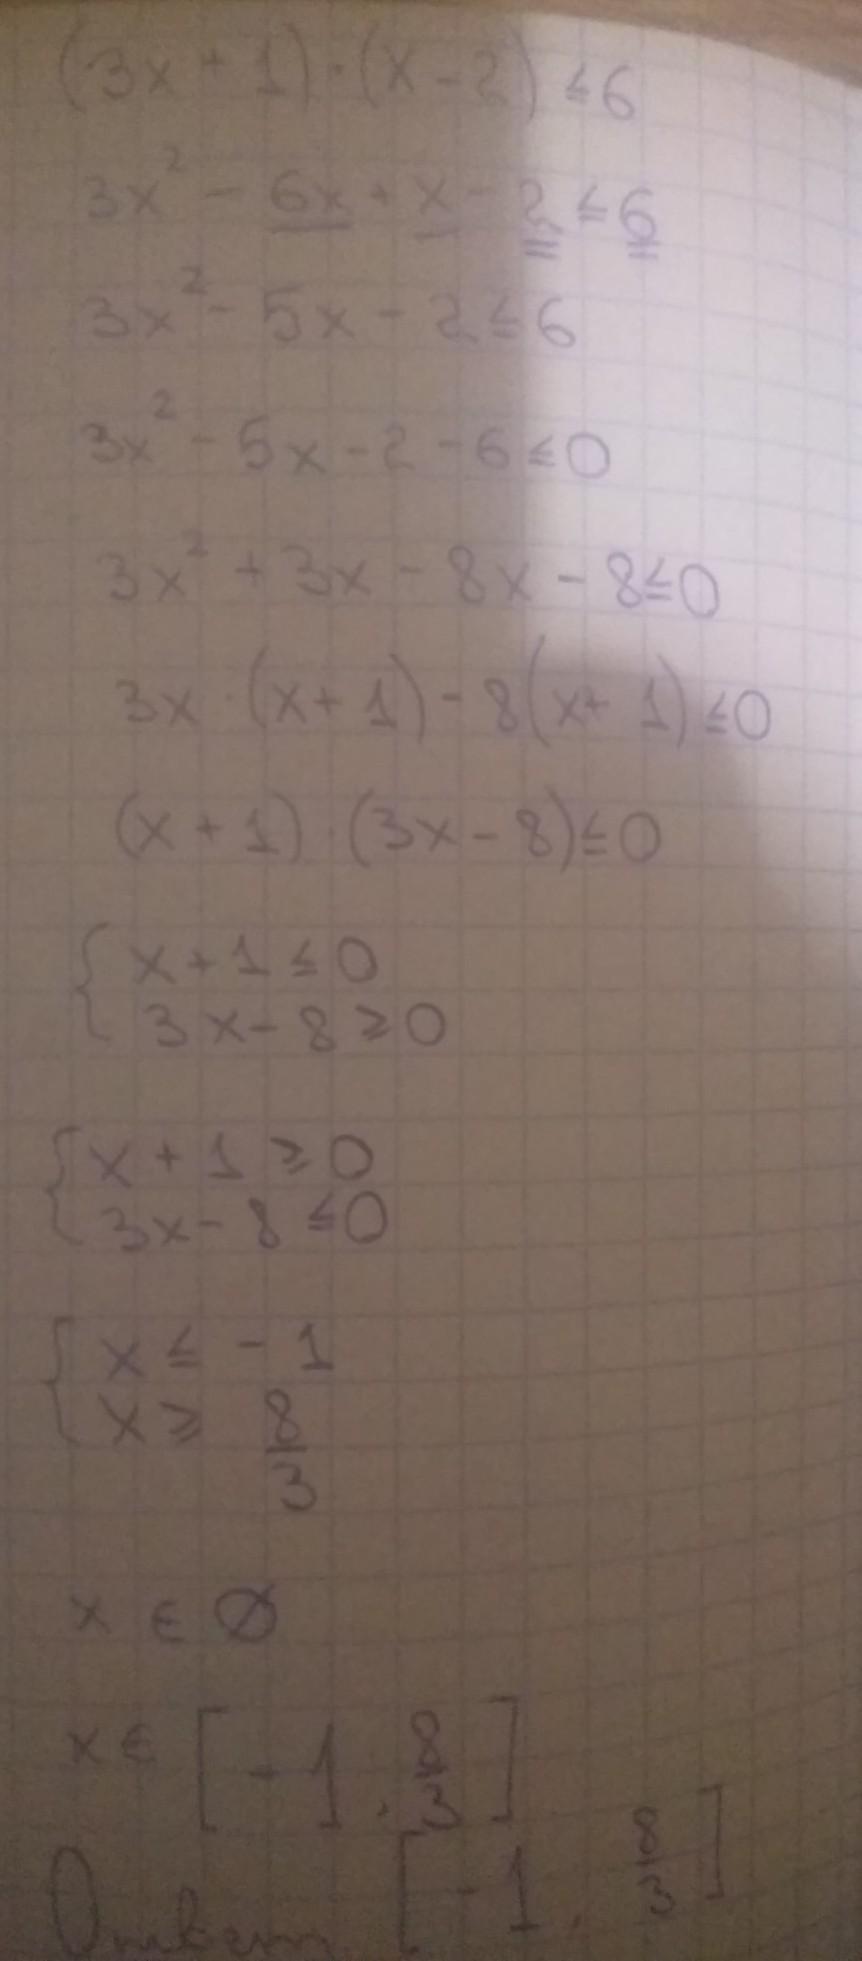 (3x + 1) · (x - 2) ≤ 6
3x² - 6x + x - 2 ≤ 6
3x² - 5x - 2 ≤ 6
3x² - 5x - 2 - 6 ≤ 0
3x² + 3x - 8x - 8 ≤ 0
3x · (x + 1) - 8(x + 1) ≤ 0
(x + 1) · (3x - 8) ≤ 0
{ x + 1 ≤ 0
3x - 8 ≥ 0
{ x + 1 ≥ 0
3x - 8 ≤ 0
{ x ≤ - 1
x ≥ 8/3
x ∈ ∅
x ∈ [-1, 8/3]
Ответ [-1, 8/3]